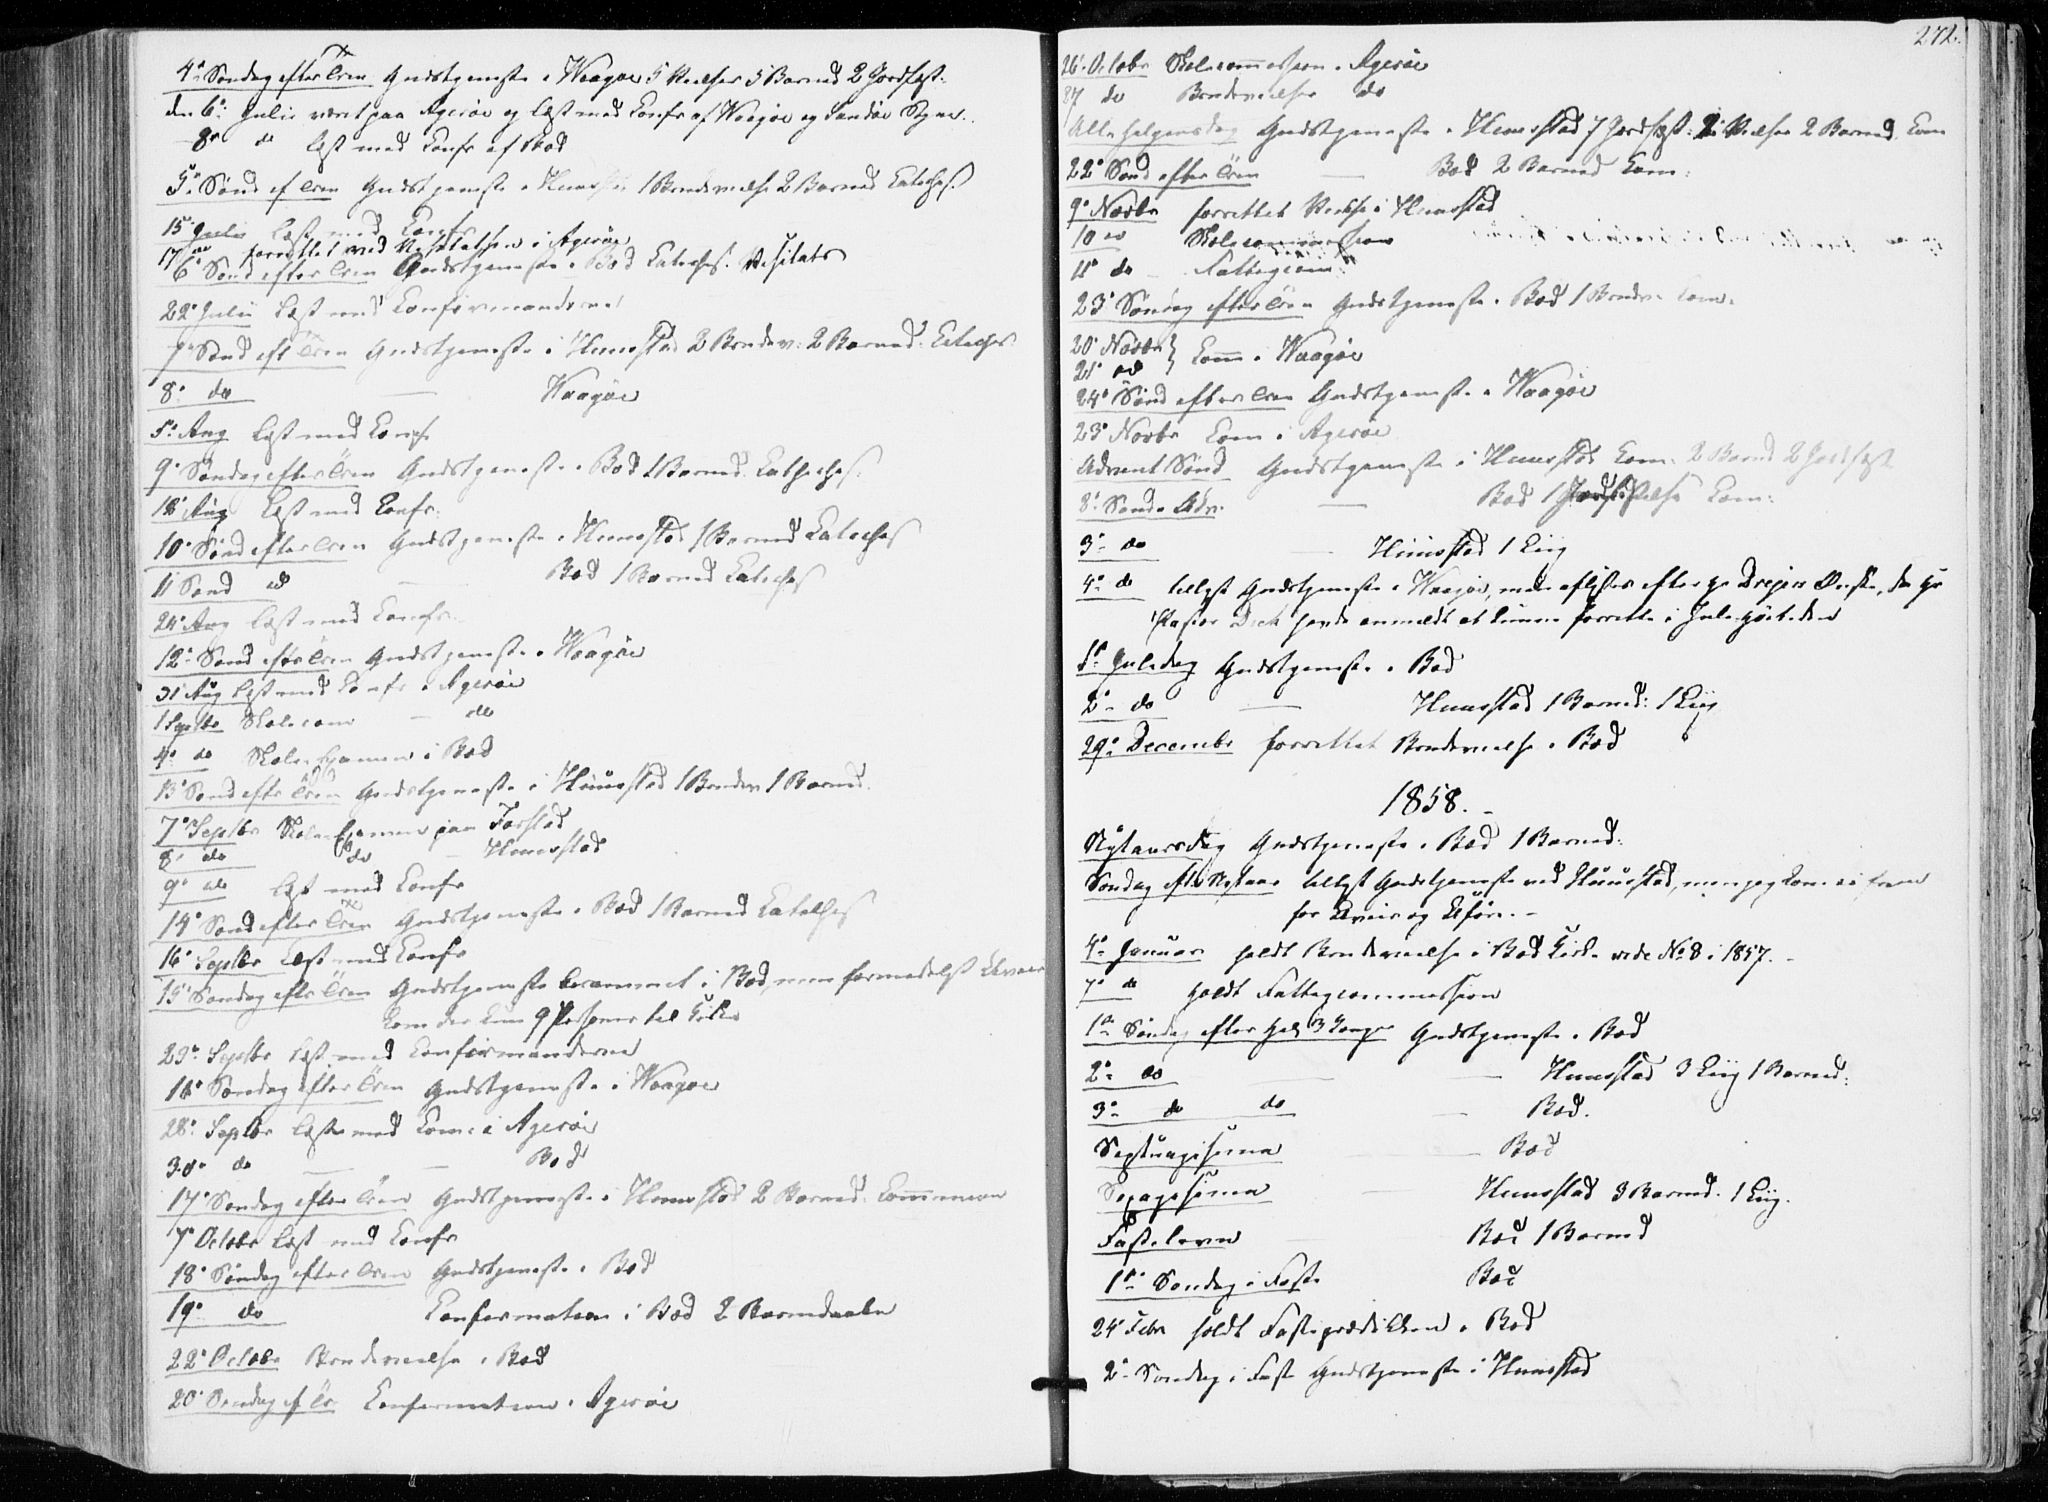 4de Søndag efter Tren Gudstjeneste i Waagøe 5 Vielser 5 Barned 2 Jordfæst:
den 6te Julii været paa Agerøe og læst med Confr af Waagøe og Sandøe Sogne
8de do læst med Confr af Bod
5te Sønd ef Tren Gudstjeneste i Huustad 1 Brudevielse 2 Barned Catechis.
15 Julii læst med Confr
17 do forrettet ved Visitatsen i Agerøe
6te Sønd efter Tren Gudstjeneste i Bod Catechis. Visitats
22de Julii læst med Confirmanderne
7de Sønd eft Tren Gudstjeneste i Huustad 2 Brudev: 2 Barned: Catechis
8de do — Waagøe
5te Aug læst med Confr
9de Søndag efter Tren Gudstjeneste i Bod 1 Barned. Cathechis.
12te Aug læst med Confr.
10de Sønd efter Tren Gudstjeneste i Huustad 1 Barned Catechis
11 Sønd do — Bod 1 Barned Catechis
24de Aug læst med Confr.
12te Sønd efter Tren Gudstjeneste i Waagøe
31 Aug læst med Confr i Agerøe
1 Septbr Skolecom — do
4de do Skole Examen i Bod
13de Sønd eftr Tren Gudstjeneste i Huustad 1 Brudev 1 Barned.
7de Septbr Skole Examen paa Farstad
8de do do — Huustad
9de do læst med Confr
14de Sønd efter Tren Gudstjeneste i Bod 1 Barned Catechis
16de Septbr læst med Confr
15de Søndag eftr Tren Gudstjeneste berammet i Bod, men formedelst Uveir
kom der kun 9 Personer til Kirke
23de Septbr læst med Confirmanderne
16de Søndag efter Tren Gudstjeneste i Waagøe
28de Septbr læst med Confr i Agerøe
30de do — — Bod
17de Søndag efter Tren Gudstjeneste i Huustad 2 Barned: Communion
7de Octobr læst med Confr
18de Søndag efter Tren Gudstjeneste i Bod
19de do Confirmation i Bod 2 Barnedaabe
22de Octobr Brudevielse i Bod
20de Søndag ef Tr Confirmation i Agerøe
272.
26de Octobr Skolecommission i Agerøe
27 do Brudevielse do
Allehelgensdag Gudstjeneste i Huustad 7 Jordfæst: 2 Vielser 2 Barned Com
22de Sønd efter Tren — Bod 2 Barned Com:
9de Novbr forrettet Vielse i Huustad
10 do Skolecommission
11te do Fattigcom:
23de Søndag efter Tren Gudstjeneste i Bod 1 Brudv. Com.
20de Novbr }
21de do } Com i Waagøe
24de Sønd efter Tren Gudstjeneste i Waagøe
23de Novbr Com i Agerøe
Advent Sønd Gudstjeneste i Huustad Com. 2 Barned 2 Jordfæst
2de Sønd i Adv. — Bod 1 Vielse Com:
3de do — Huustad 1 Liig
4de do tillyst Gudstjeneste i Waagøe, men aflystes efter Hr Drejers Ønske, da Hr
Pastor havde anmeldt at kunne forrette i Julehøitiden
1ste Juledag Gudstjeneste i Bod
2de do — Huustad 1 Barned: 1 Liig
29de Decembr forrettet Brudevielse i Bod
1858.
Nytaarsdag Gudstjeneste i Bod 1 Barned:
Søndag eftr Nytaar tillyst Gudstjeneste ved Huustad, men jeg kom ei frem
for Uveir og Uføre.
4de Januar holdt Brudevielse i Bod Kirke vide No 8 i 1857.
7de do holdt Fattigcommission
1ste Søndag efter Hel 3 Konger Gudstjeneste i Bod
2de do — Huustad 3 Liig 1 Barned:
3de do do — Bod.
Septuagesima — Bod
Sexagesima — Huustad 3 Barned. 1 Liig.
Fastelavn — Bod 1 Barned
1ste Søndag i Faste Bod
24de Febr holdt Fasteprædiken i Bod
2de Søndag i Faste Gudstjeneste i Huustad